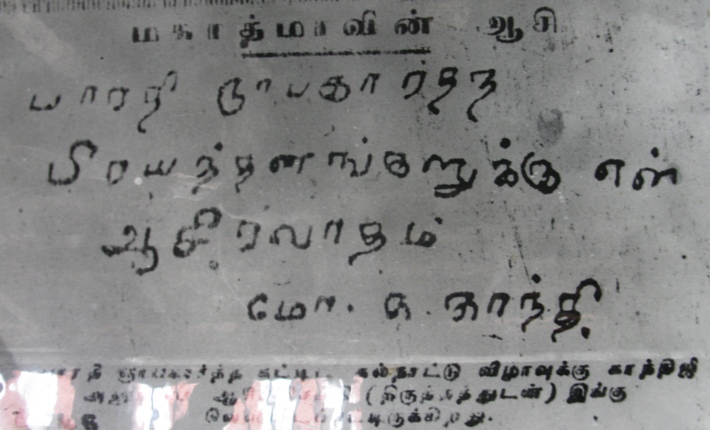 மகாத்மாவின் ஆசி
பாரதி ஞாபகார்த்த
பிரயத்தனங்களுக்கு என்
ஆசிரவாதம்
மோ. க. காந்தி
பாரதி ஞாபகார்த்த கட்டிட கல்நாட்டு விழாவுக்கு காந்திஜி
(திருத்தத்துடன்) இங்கு